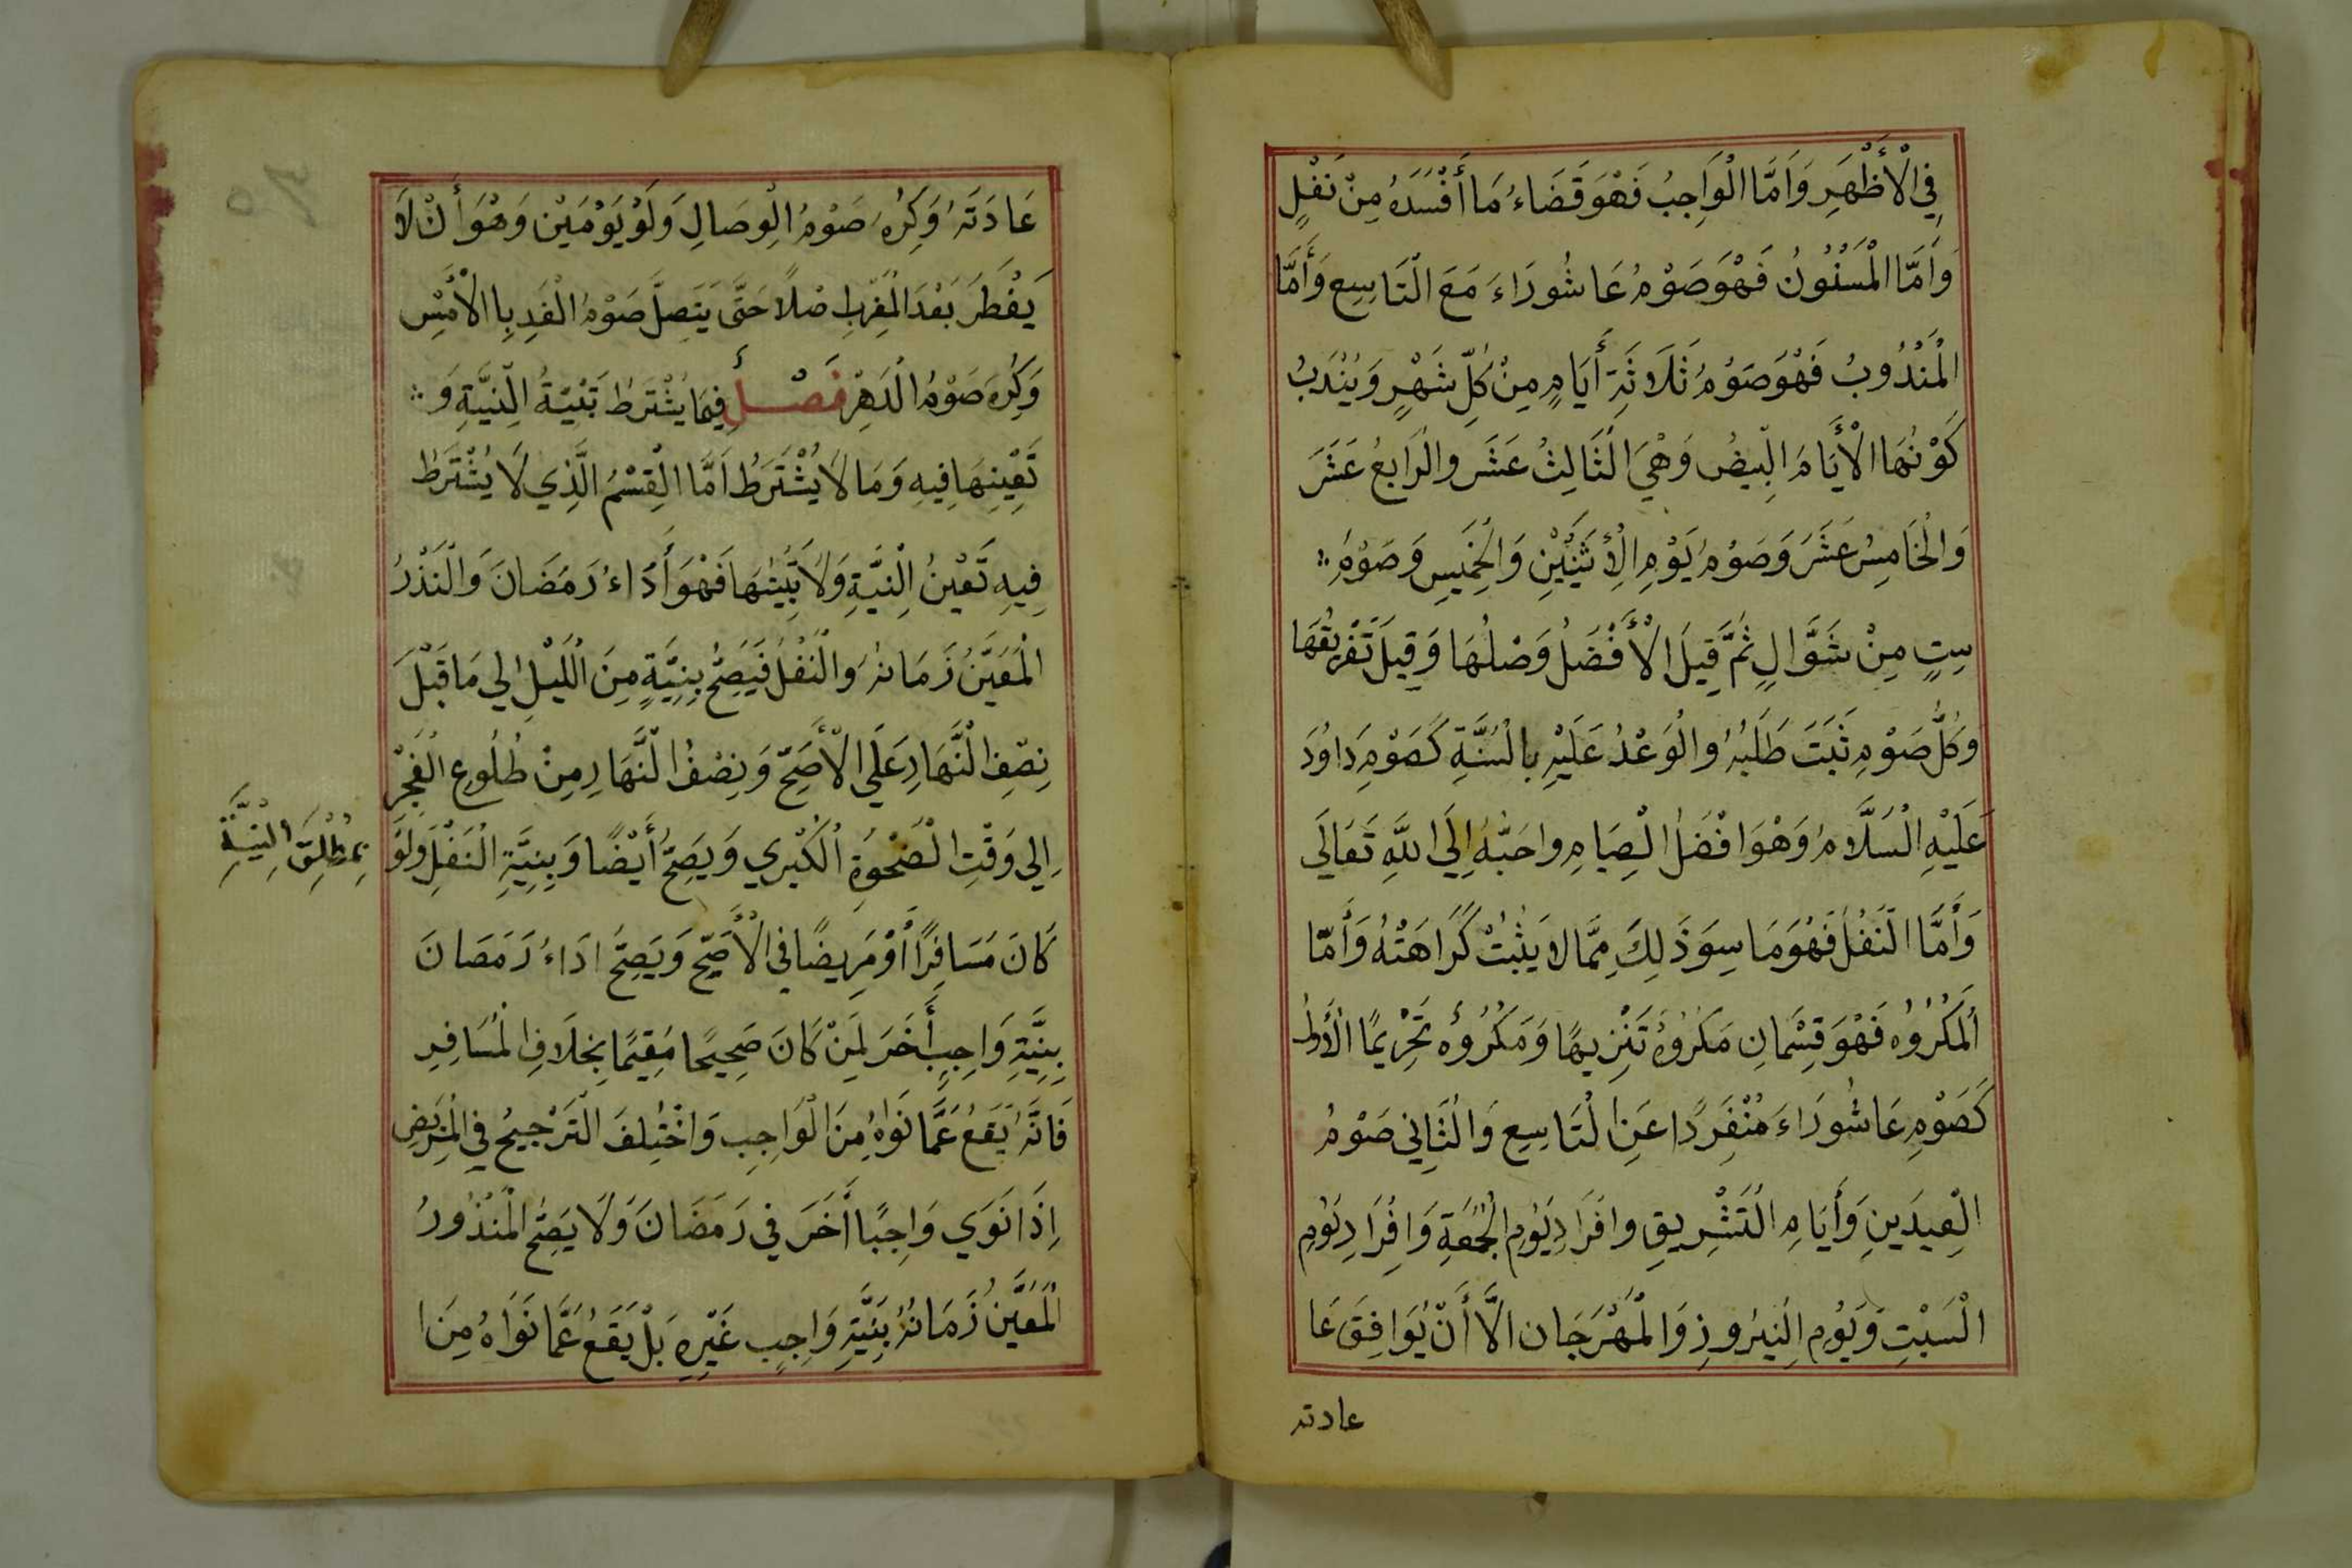 فِي الْأَظْهَرِ وَأَمَّا الْوَاجِبُ فَهْوَ قَضَاءُ مَا أَفْسَدَهُ مِنْ نَفْلٍ
وَأَمَّا الْمَسْنُونُ فَهْوَ صَوْمُ عَاشُورَاءَ مَعَ الْتَاسِعِ وَأَمَّا
الْمَنْدُوبُ فَهْوَ صَوْمُ ثَلَاثَةِ أَيَامٍ مِنْ كُلِّ شَهْرٍ وَيُنْدَبُ
كَوْنُهَا الْأَيَامَ الْبِيضُ وَهْيَ الْثَالِثُ عَشَرَ والْرَابِعُ عَشَرَ
وَالْخَامِسُ عَشَرَ وَصَوْمُ يَوْمِ الْأِثْنَيْنِ وَالْخَمِيسِ وَصَوْمُ
سِتٍ مِنْ شَوَّالٍ ثُمَّ قِيلَ الْأَفْضَلُ وَصْلُهَا وَقِيلَ تَفْرِيقُهَا
وَكُلُّ صَوْمٍ ثَبَتَ طَلَبُهُ والْوَعْدُ عَلَيْهِ بِالْسُنَّةِ كَصَوْمِ دَاوُدَ
عَلَيْهِ الْسَلَّامُ وَهْوَ افْضَلُ الْصِيَامِ واحَبُّهُ إِلَى اللَّهِ تَعَالَى
وَأَمَّا الْنَفْلُ فَهْوَ مَا سِوَ ذَلِكَ مِمَّا لا يَثْبُتْ كَرَاهَتُهُ وَأَمَّا
الْمَكْرُوُه فَهْوَ قِسْمَانِ مَكْرُوهٌ تَنْزِيهًا وَمَكْرُوهُ تَحْرِيمًا الْأَولُ
كَصَوْمِ عَاشُورَاءَ مُنْفَرِدًا عَنِ الْتَاسِعِ وَالْثَانِي صَوْمُ
الْعِيدَينِ وَأَيَامِ الْتَشْرِيقِ وافْرَادِ يَوْمِ الْجُمُعَةِ وَافْرَادِ يَوْمِ
الْسَبْتِ وَيَوْمِ الْنَيْرُوزِ وَالْمَهْرَجَانِ الَّا أَنْ يُوَافِقَ عَا
عادته
عَادَتَهُ وَكِرُهَ صَوْمُ الْوِصَالِ وَلَوْ يَوْمَيْنِ وَهْوَ أَنْ لَا
يَفْطَرَ بَعْدَ الْمَغْرِبِ صْلًا حَتَّى يَتَصِلَ صَوْمُ الْغَدِ بِالْأَمْسِ
وَكُرِهَ صَوْمُ الْدَهْرِ فَصْلٌ فِيمَا يُشْتَرَطُ تَبْيِيْتُ الْنِيَّةِ وَ
تَعْيِنِهَا فِيهِ وَمَا لَا يُشْتَرَطُ أَمَّا الْقِسْمُ الَّذِي لَا يُشْتَرَطُ
فِيهِ تَعْيْنُ الْنِيَّةِ وَلَا تَبْيِيْتُهَا فَهْوَ أَدَاءُ رَمَضَانَ وَالْنَذْرُ
الْمُعَيَّنُ زَمَانهُ وَالْنَفْلُ فَيَصِحُّ بِنِيَّةٍ مِنَ اللَيْلِ الي مَا قَبْلَ
نِصْفِ الْنَّهَارِ عَلَي الْأَصَحِّ وَنِصْفُ الْنَّهَارِ مِنْ طُلُوعِ الْفَجْرِ
الِي وَقْتِ الْضَحْوَةِ الْكُبْرِي وَيَصِحُّ أَيْضًا وَبِنِيَّةِ الْنَفْلِ وَلَوْ
بِمُطْلِقِ الْنِيَّةِ
كَانَ مُسَافِرًا أَوْ مَرِيضًا فِي الْأَصَحِّ وَيَصِحُّ ادَاءُ رَمَضانَ
بِنِيَّةِ وَاجِبٍ أَخَرَ لِمَنْ كَانَ صَحِيحًا مُقِيمًا بِخِلَافِ الْمُسَافِرِ
فَانَّهُ يَقَعُ عَمَّا نَوَاهُ مِنَ الْوَاجِبِ وَاخْتُلِفَ الْتَرْجِيحُ فِي الْمَرِيضِ
اِذَا نَوَي وَاجِبًا أَخَرَ فِي رَمَضَانَ وَلَا يَصِحُّ الْمَنْذُورُ
الْمُعَيَّنُ زَمَانُهُ بِنِيَّةِ وَاجِبٍ غَيْرِهِ بَلْ يَقَعُ عَمَّا نَوَاهُ مِنَ ا